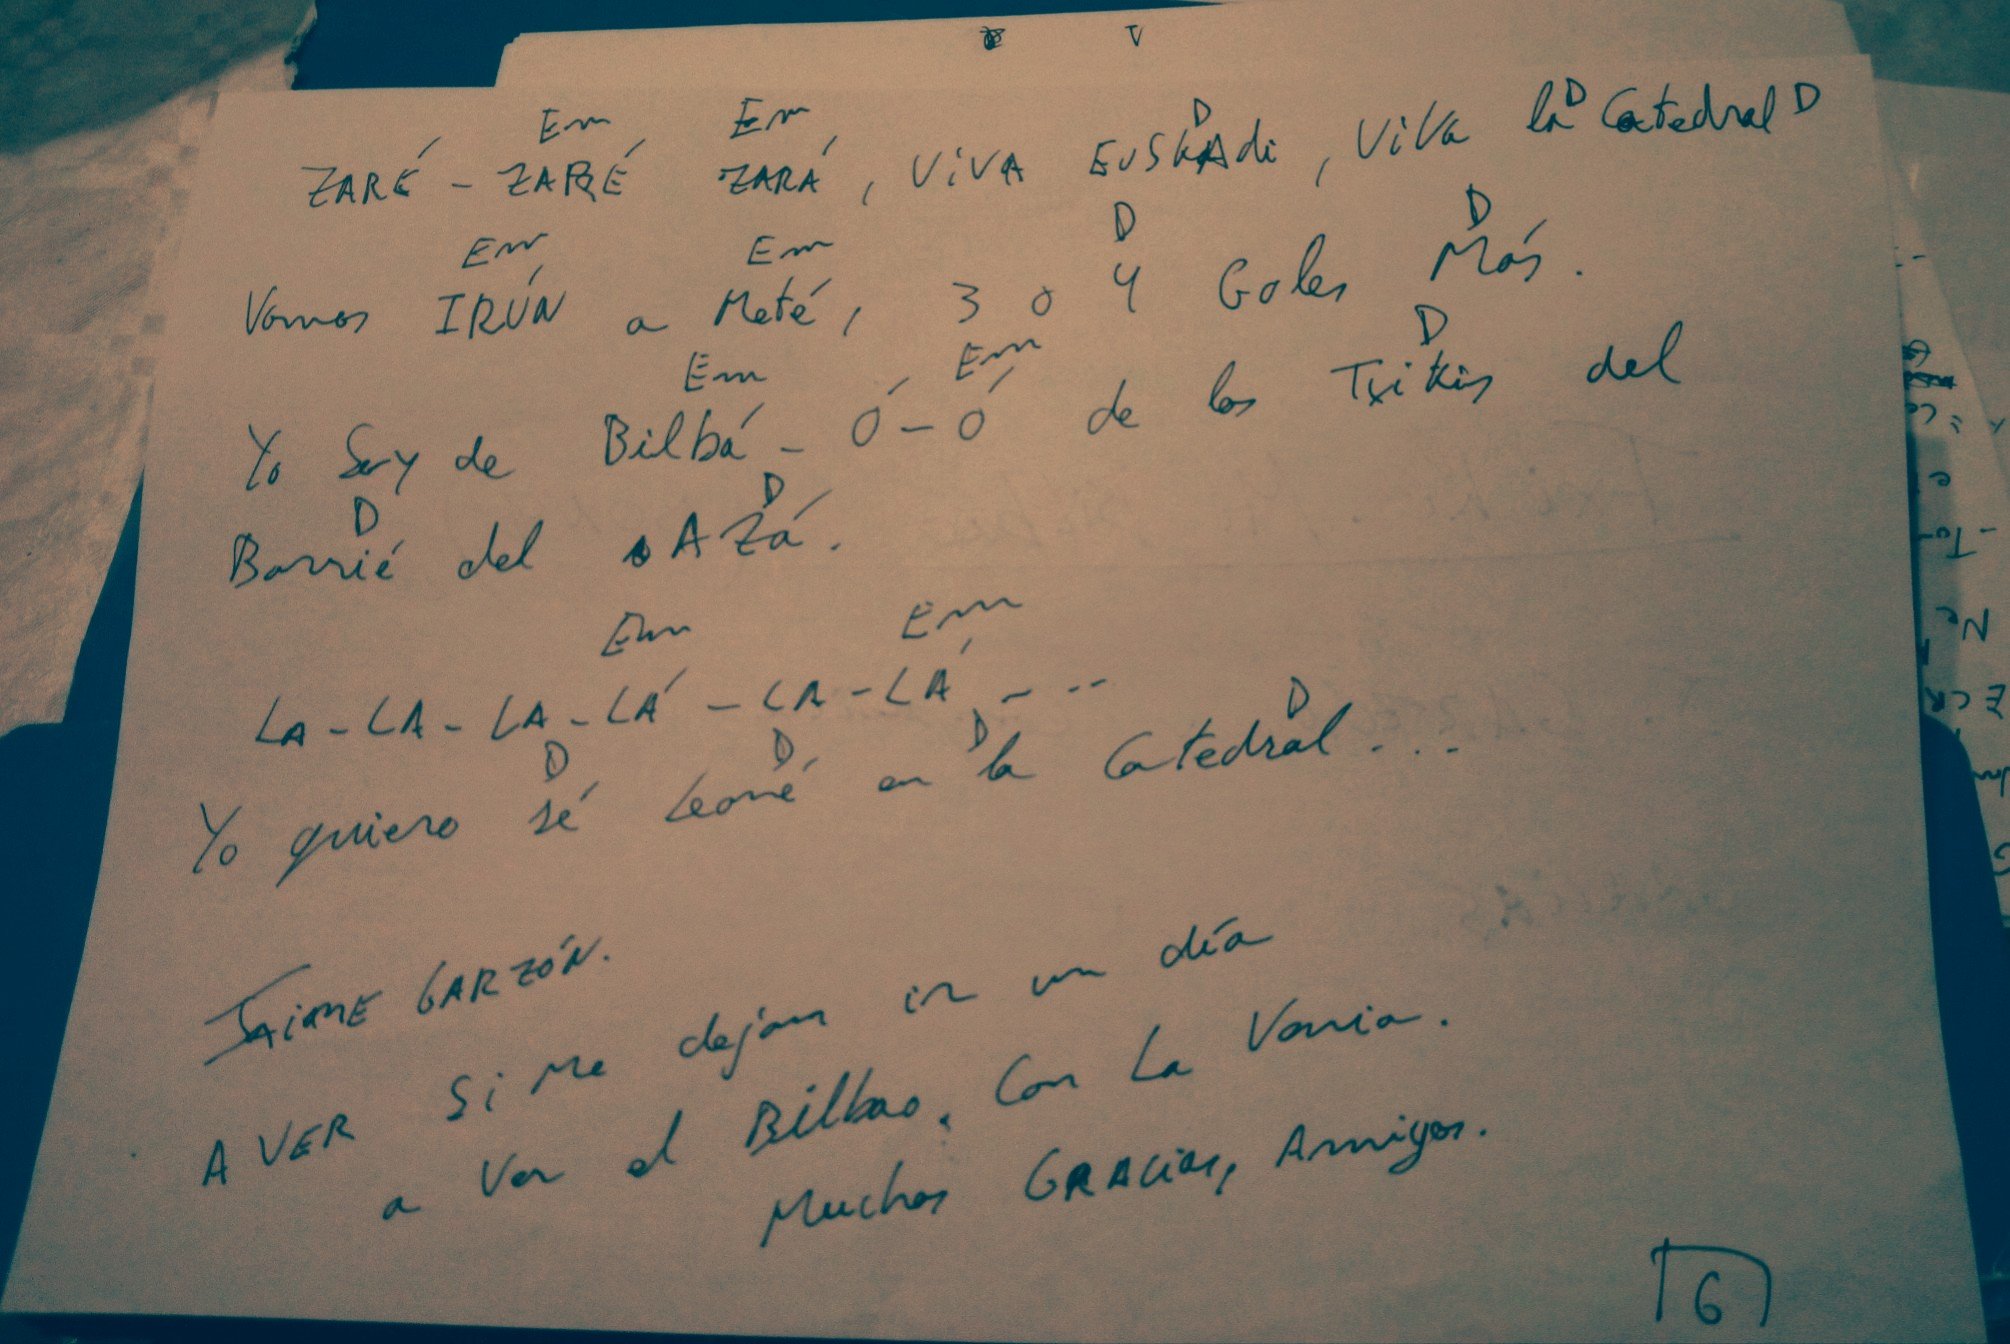 Em Em D D D
ZARÉ - ZARÉ ZARÁ, ViVA EUSKAdi, ViVa la Catedral
Em Em D D
Vamos IRÚN a Meté, 3 o 4 Goles Más.
Em Em D
Yo Soy de Bilbá - Ó - Ó de los Txikis del
D D
Barrié del AZá.
Em Em
LA - LA - LA - LÁ - LA - LÁ - - -
D D D D
Yo quiero sé Leoné en la Catedral . . .
JAiME GARZÓN.
A VER Si Me dejan ir un día
a Ver el Bilbao. Con La Vania.
Muchas GRACias, Amigos.
6